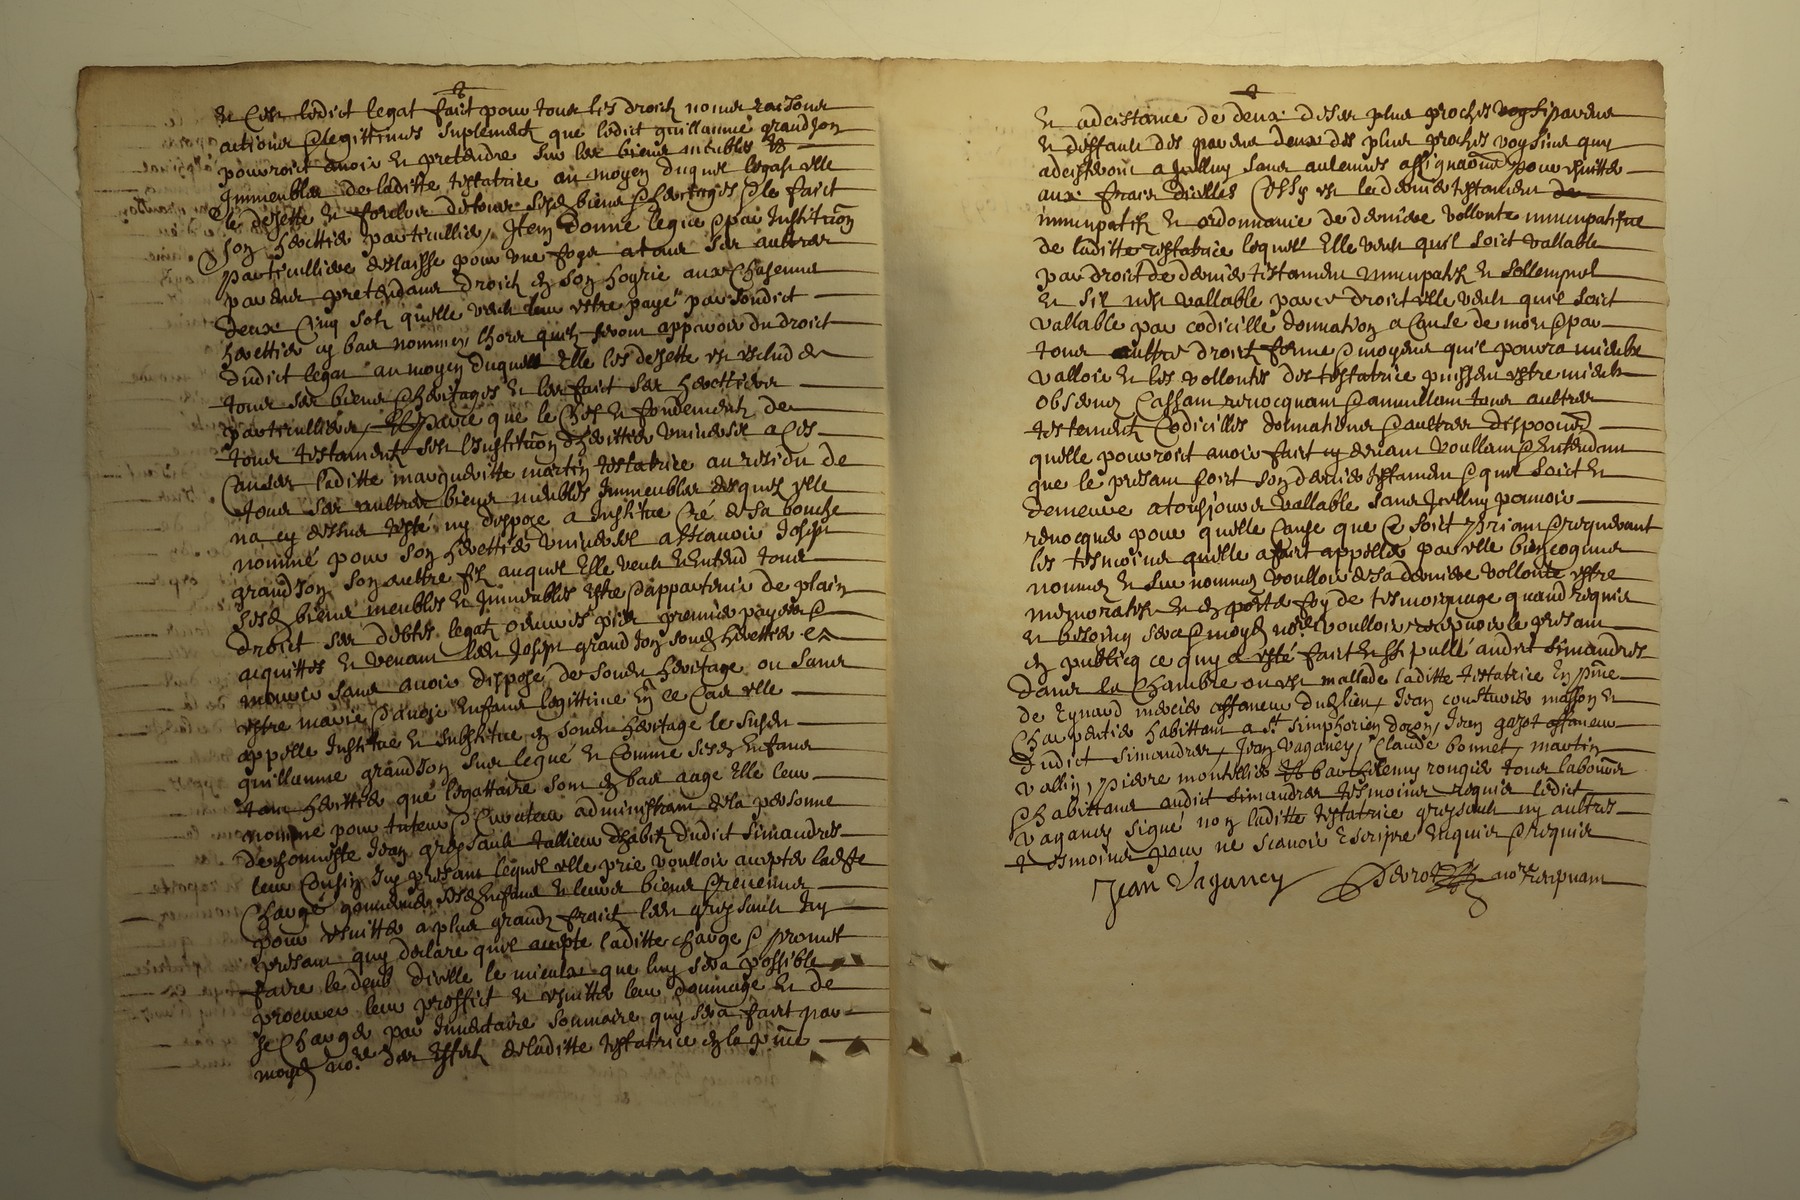 Et c'est ledict legat fait pour tous les droictz noms raisons
actions & legittimes suplement que ledict guillaume grandjon
pourroit avoir et pretendre sur les bienz meubles et
Immeubles de laditte testatrice au moyen duquel legat elle
le dejette et forclos de tous sesdz biens & heritages & le faict
son herittier particullier, Item donne legue & par Institu͠on
particulliere delaisse pour une foys a tous ses aultres
parens pretendans droict en son hoyrie aux Chascuns
deux Cinq solz quelle veult leur estre paye par sondict
herettier cy bas nommez, lhors quilz feront apparoir du droict
dudict legat au moyen duquel Elle les dejette et exclud de
tous ses biens & heritages et les faict ses herettiers
particulliers, Et parce que le Chef et fondement de
tous testament est l'Institu͠on d'herittier universel a ces
Causes laditte margueritte martin testatrice au residu de
tous ses aultres biens meubles Immeubles desquelz elle
na cy dessus teste ny dispoze a Institue Cre & de sa bouche
nommé pour son herettier universel assçavoir Joseph
grandjon son aultre filz auquel Elle veult & Entend tous
sesdz biens meubles et Immeubles Estre & appartenir de plain
droict ses debtes legatz oeuvres pies premier payees &
acquittes Et venant ledit Joseph grandjon sondz herettier a
mourir sans avoir dispoze de sondz heritage ou sans
estre marie & avoir Enfans legittime En ce Cas elle
appelle Institue et substitue en sondz heritage le susdit
guillaume grandjon sus legué Et Comme sesdz Enfans
tant herittier que legattaire sont en bas aage Elle leur
nomme pour tuteur & Curateur administrant de la personne
de honneste Jean greysault tallieur dhabitz dudict simandres
leur Cousin Icy present lequel elle prie voulloir accepter laditte
Charge gouverner sesdz Enfans et leurs biens & revenus
pour esvitter a plus grandz fraictz ledit greysault Icy
present quy declare quil accepte laditte charge & promet
faire le deub dicelle le mieulx que luy sera possible
procurer leur proffict et esvitter leur dommage et de
se Charger par Inventaire sommaire quy sera faict par
moyd no.re des effectz de laditte testatrice en la p͠nce
Et adcistance de deux de ses plus proches parens
Et deffault des parens deux des plus proches voysins quy
adcisteront a Icelluy sans aulcunes assigna͠on pour esvitter
aux fraix dicelles Cessy est le dernier testament
nuncupatif et ordonnance de derniere vollonte nuncupatifve
de laditte testatrice lequel Elle veult quil soict vallable
par droict de dernier testament nuncupatif et sollempnel
Et sil nest vallable par ce droict elle veult quil soict
vallable par codicille donnation a Cause de mort & par
tous aultres droict forme & moyens quil pourra mieulx
valloir et les vollontes de testatrice puissent estre mieulx
observez Cassant revocquant & annullant tous aultres
testament Codicilles donnations & aultres disposi͠on
quelle pourroit avoir faict cy devant voullant & Entendant
que le present soict son dernier testament & quil soict et
demeure a tousjours vallable sans Icelluy pouvoir
revocquer pour quelle Cause que ce soict priant & requerant
les tesmoins quelle a faict appelles par elle bien cognus
nommez et surnommez voulloir de sa derniere vollonte estre
memoratifz et en porter foy de tesmoignage quand requis
et besoing sera & moyd no.re voulloir recepvoir le present
en publicq ce quy a esté faict et stipullé audict simandres
dans la Chambre ou est mallade laditte testatrice En p͠nce
de Eynard mercier affaneur dudz lieu, Jean constavier masson et
Charpentier habittant a st simphorien dozon, Jean gazot affaneur
dudict simandres, Jean Vaganey, Claude bonnet, martin
vallin, pierre montellier et barthelemy rougier tous laboure͠rs
& habittans audict simandres tesmoins requis ledict
vaganey signé non laditte testatrice greysault ny aultres
tesmoins pour ne scavoir Escripre Enquis & requis
Jean Vaganey no.re recepvant